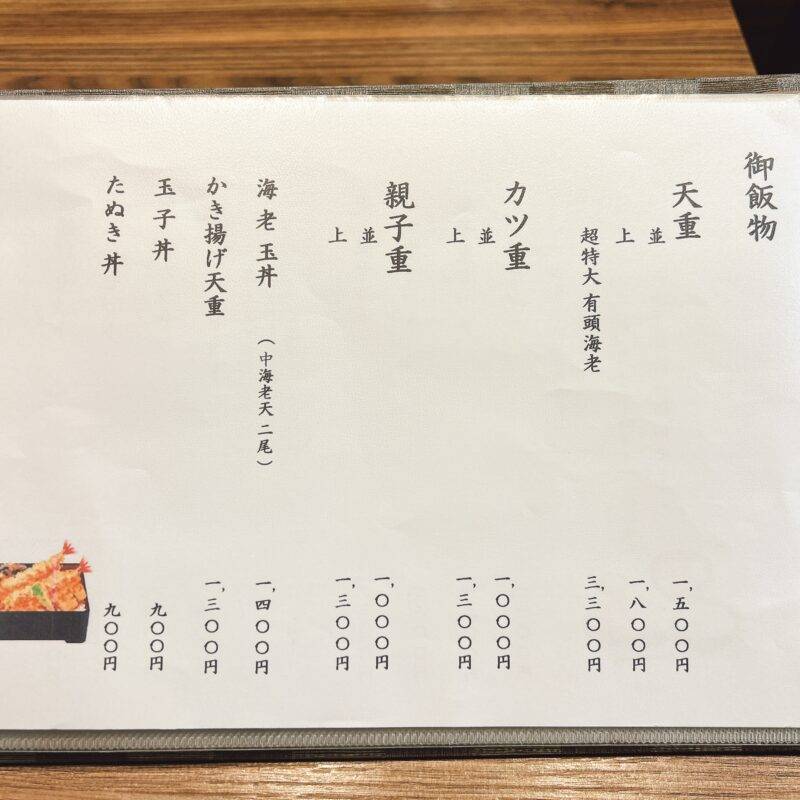 御飯物
天重
並 一,五〇〇円
上 一,八〇〇円
超特大 有頭海老 三,三〇〇円
カツ重
並 一,〇〇〇円
上 一,三〇〇円
親子重
並 一,〇〇〇円
上 一,三〇〇円
海老玉丼 (中海老天 二尾) 一,四〇〇円
かき揚げ天重 一,三〇〇円
玉子丼 九〇〇円
たぬき丼 九〇〇円